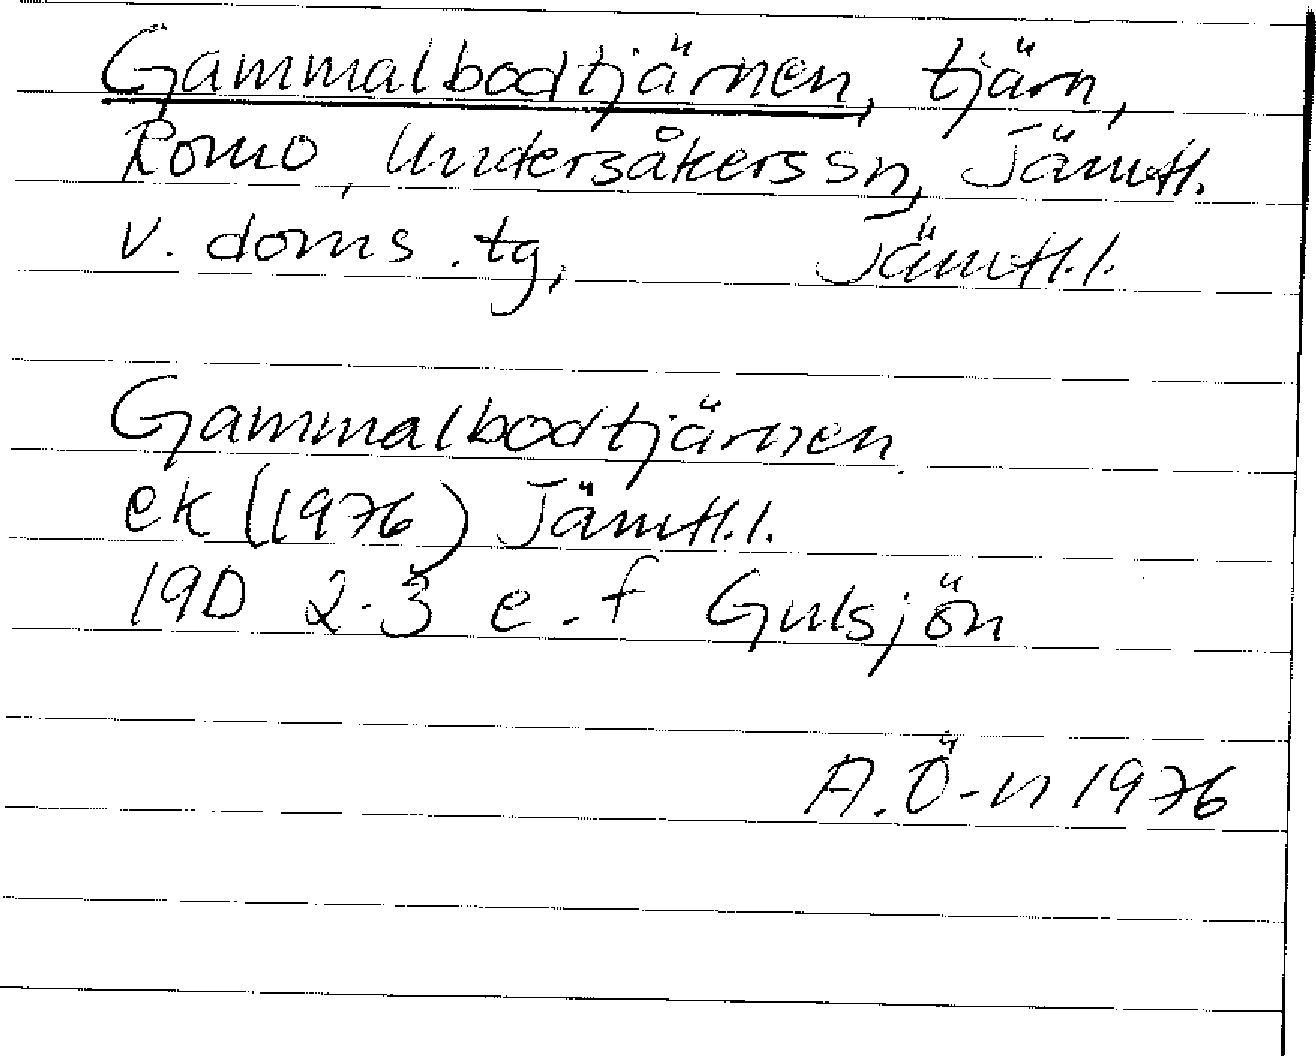 Gammalbodtjärnen, tjärn,
Romo, Undersåkers sn, Jämtl.
v. doms. tg, Jämtl.l.
Gammalbodtjärnen
ek (1976) Jämtl.l.
19D 2-3 e-f Gulsjön
A. Ö-n 1976